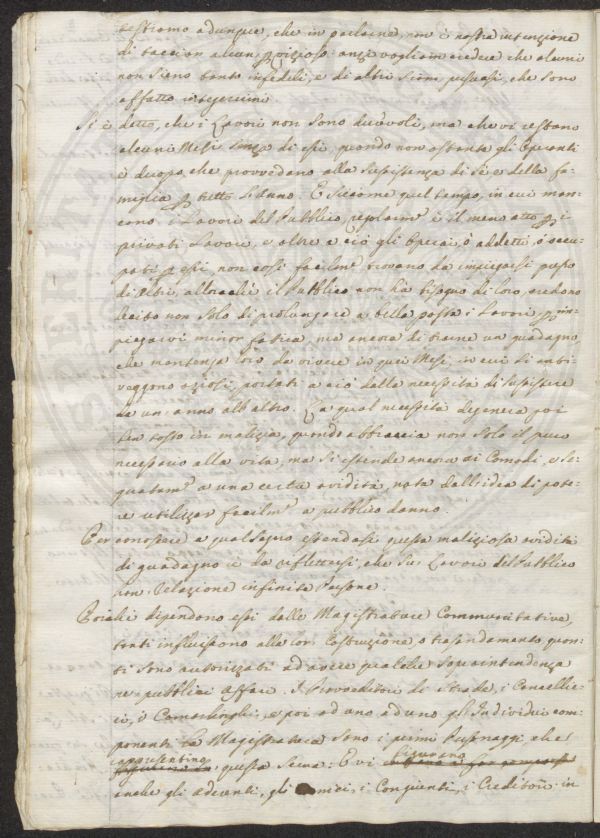 testiamo adunque, che in parlarne, non è nostra intenzione
di tacciar alcun, p vizioso: anzi vogliam credere che alcuni
non sieno tanto infedeli, e di altri siam persuasi, che sono
affatto integerrimi.
Si è detto, che i Lavori non sono durevoli, ma che vi restano
alcuni Mesi senza di essi, quando non ostante gli Operanti
è duopo, che provvedano alla sussistenza di Sè, e della fa-
miglia p tutto l'anno. E siccome quel tempo, in cui man-
cano i Lavori del Pubblico, regolarm.e è il meno atto p i
privati Lavori, e oltre a ciò gli Operai, ò addetti, ò occu-
pati p essi non così facilm.e trovano da impiegarsi presso
di Altri, allorachè il Pubblico non ha bisogno di loro, credono
lecito non solo di prolungare a bella posta i Lavori p im-
piegarvi minor fatica, ma ancora di trarne un guadagno,
che mantenga loro da vivere in quei Mesi, in cui si anti-
veggono oziosi, portati a ciò dalla necessità di sussistere
da un' anno all'altro. La qual necessità degenera poi
ben tosto in malizia, quando abbraccia non solo il puro
necessario alla vita, ma si estende ancora ai Comodi, e se-
gnatam.e a una certa avidità, nata dall'idea di pote-
re utilizzar facilm.e a pubblico danno.
Per conoscere a qual segno estendasi questa maliziosa avidità
di guadagno è da riflettersi, che su' Lavori del Pubblico
àn. relazione infinite Persone.
Poichè dipendono essi dalle Magistrature Communitative,
tanti influiscono alla lor Costruzione, o trasandamento, quan-
ti sono autorizzati ad avere qualche soprintendenza
ne' pubblici Affari. I Provveditori di Strade, i Cancellie-
ri, i Camarlinghi, e poi ad uno ad uno gli Individui com-
ponenti la Magistratura sono i primi Personaggi, che
rappresentino questa Scena: E vi figurano
anche gli Aderenti, gli Amici, i Congiunti, i Creditori: in